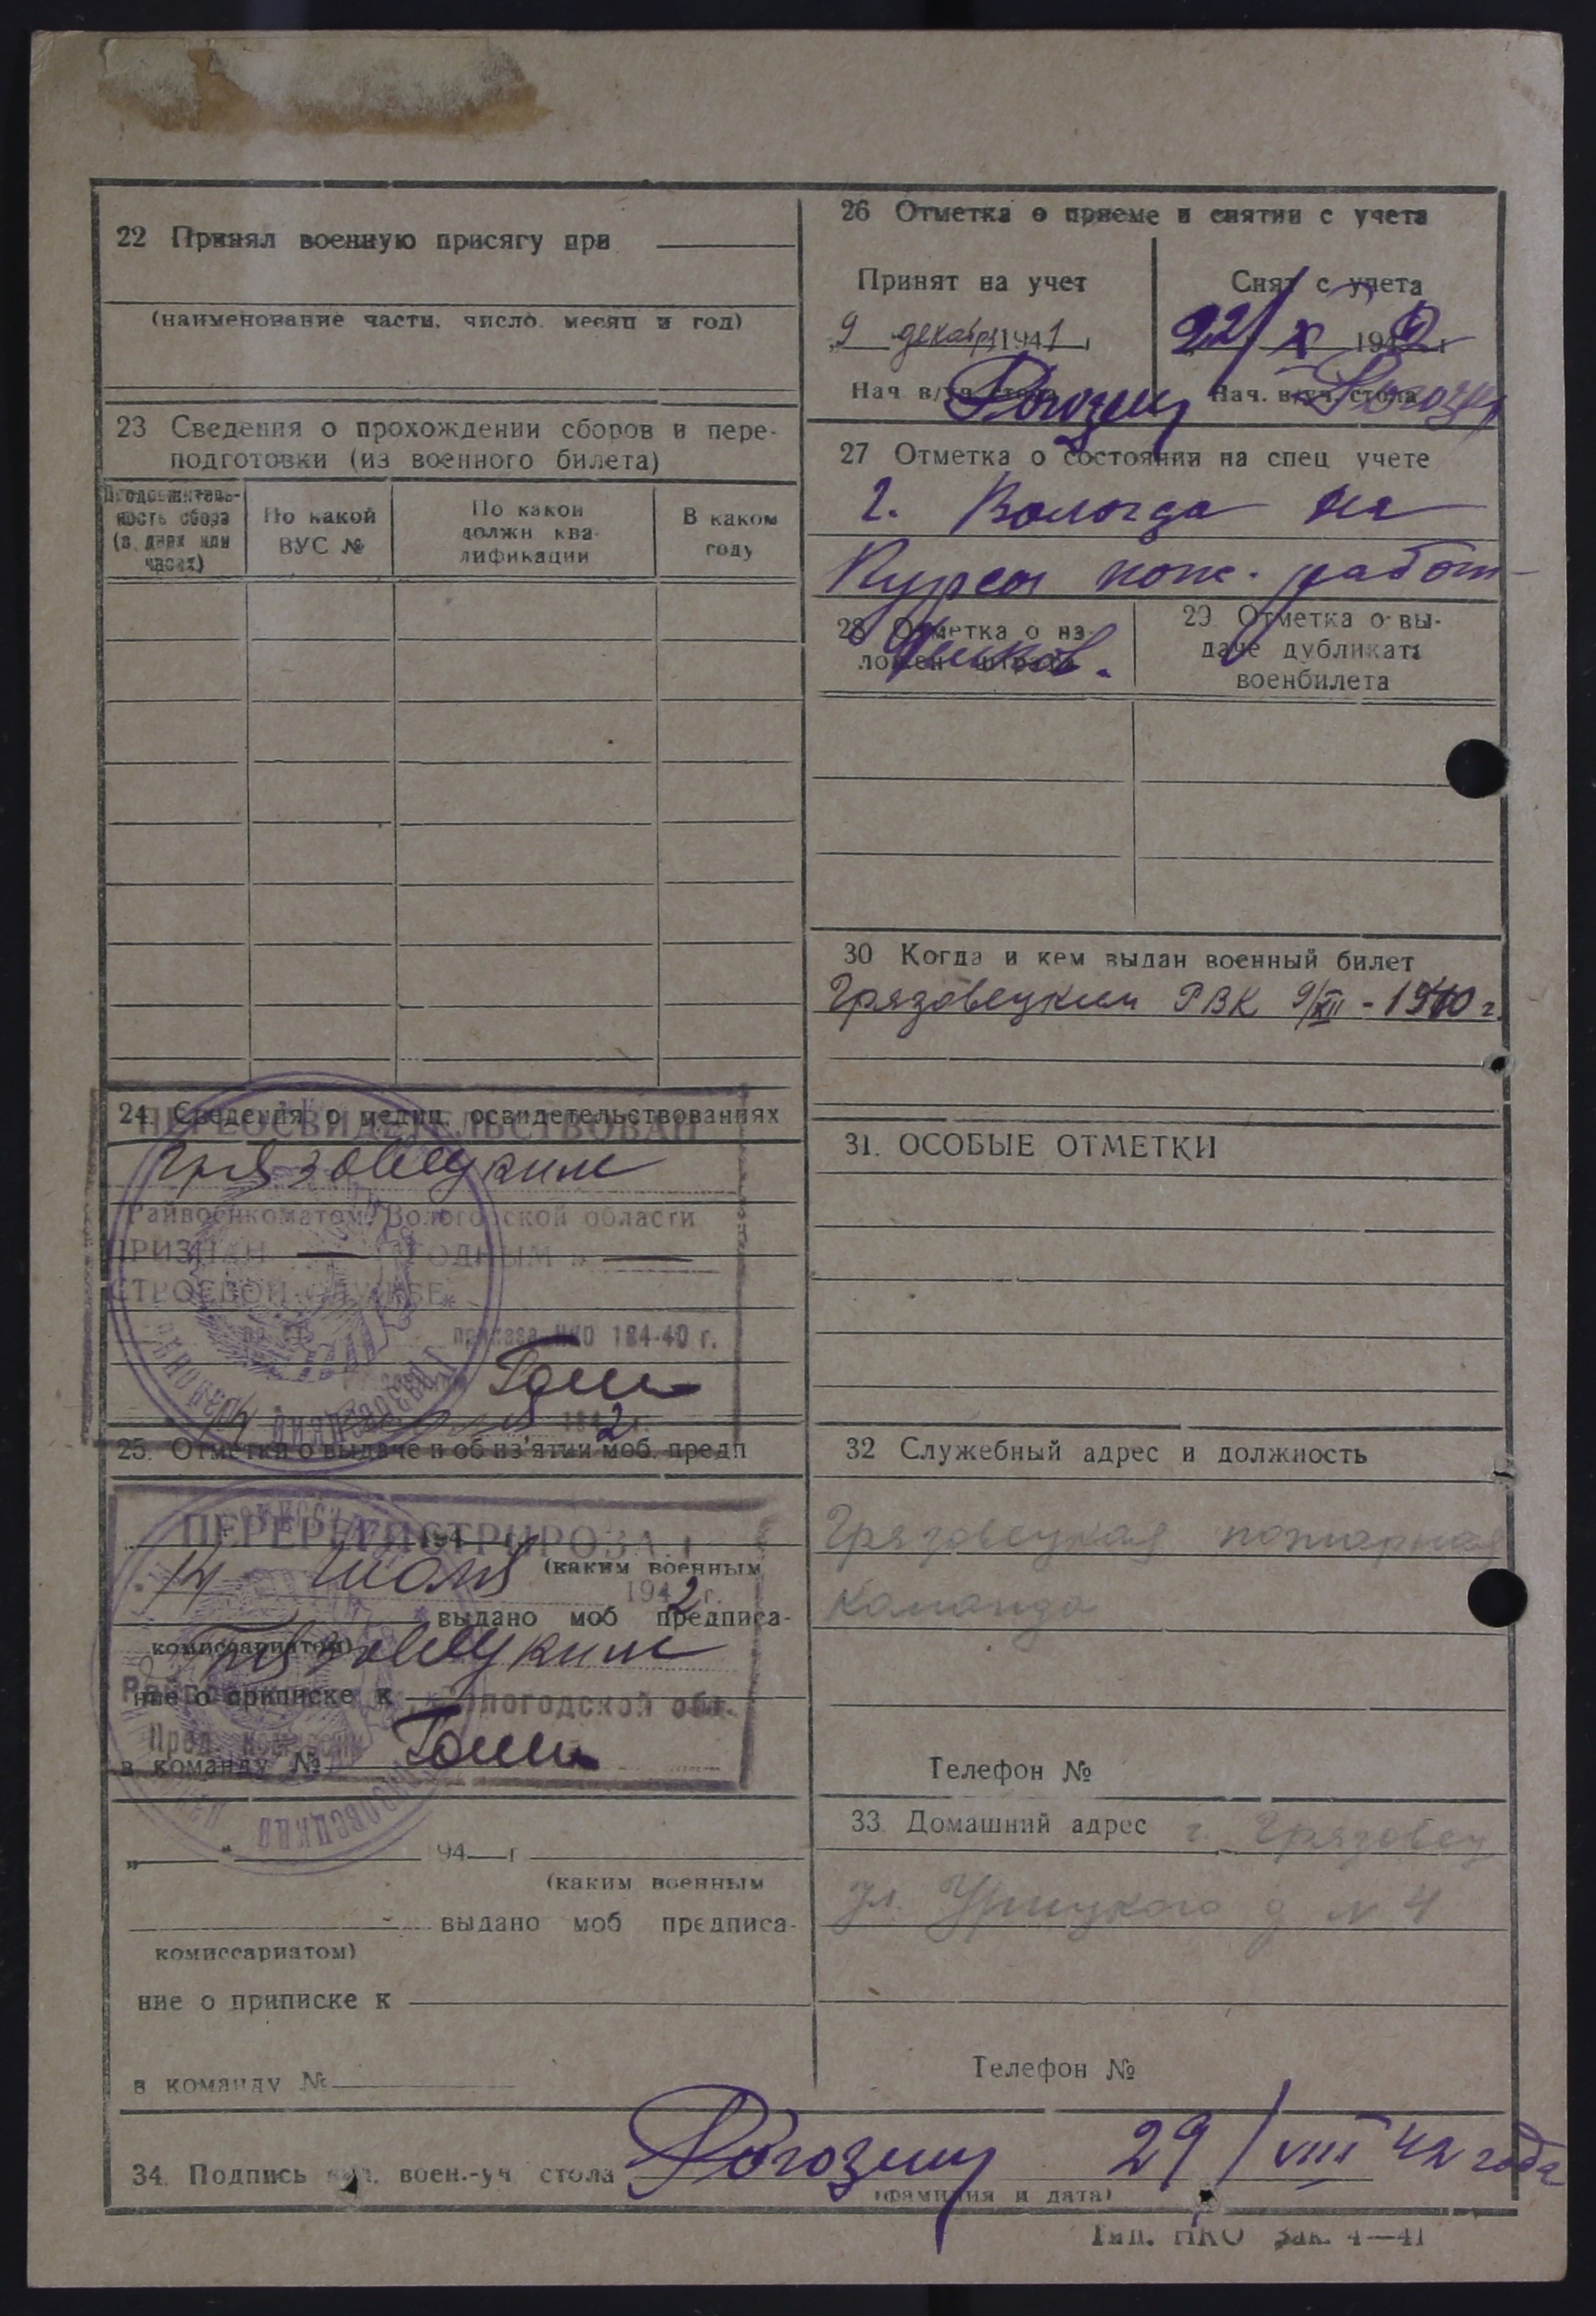 22 Принял военную присягу при
(наименование части, число, месяц и год)
23 Сведения о прохождении сборов и пере-
подготовки (из военного билета)
Продолжитель-
ность сбора
(в днях или
часах)
По какой
ВУС №
По какой
должн ква-
лификации
В каком
году
24. Сведения о медиц. освидетельствованиях
ПЕРЕОСВИДЕТЕЛЬСТВОВАН
Грязовецким
Райвоенкоматом Вологодской области
ПРИЗНАН — ГОДНЫМ к —
СТРОЕВОЙ СЛУЖБЕ
приказа НКО 184-40 г.
1942 г.
25. Отметки о выдаче и об из'ятии моб. предп
ПЕРЕРЕГИСТРИРОВАН
14 июля 1942 г.
(каким военным
выдано моб предписа-
комиссариатом)
Грязовецким
ние о приписке к
Вологодской обл.
в команду №
" " 94 г
(каким военным
выдано моб предписа-
комиссариатом)
ние о приписке к
в команду №
26 Отметка о приеме и снятии с учета
Принят на учет
Снят с учета
9 декабря 1941
22/X 1942 г
Нач в/уч стола Рогозин
Нач. в/уч. стола Рогозин
27 Отметка о состоянии на спец учете
г. Вологда на
Курсы пож. работ-
ников.
28 Отметка о на-
ложен штрафа
29. Отметка о вы-
даче дубликата
военбилета
30 Когда и кем выдан военный билет
Грязовецким РВК 9/XII - 1940 г.
31. ОСОБЫЕ ОТМЕТКИ
32 Служебный адрес и должность
Грязовецкая пожарная
команда
Телефон №
33. Домашний адрес г. Грязовец
ул. Урицкого д № 4
Телефон №
34. Подпись нач. воен.-уч стола Рогозин 29/VIII 42 года
(фамилия и дата)
Тип. НКО Зак. 4—41